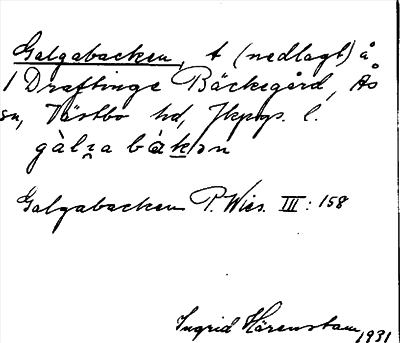 Galgabacken, t (nedlagt) å
1 Draftinge Bäckegård, Ås
sn, Västbo hd, Jkpgs. l.
gàlza bàkən
Galgabacken P. Wies. III: 158
Ingrid Härenstam 1931